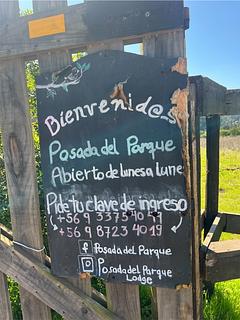 Bienvenid@s
Posada del Parque
Abierto de lunes a lune
Pide tu clave de ingreso
+56 9 3375 40 51
+56 9 8723 40 19
f Posada del Parque
Posada del Parque
Lodge